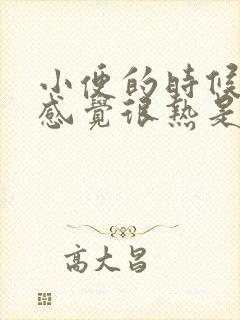 小便的時候
感覺很熱是
高大昌